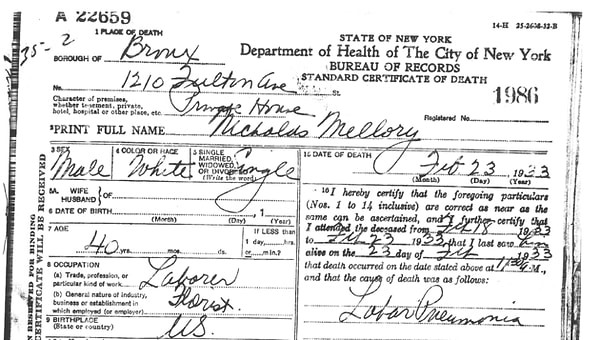 A 22659
14-H 25-2608-32-B
35-2
1 PLACE OF DEATH
STATE OF NEW YORK
BOROUGH OF Bronx
Department of Health of The City of New York
BUREAU OF RECORDS
No. 1210 Fulton Ave St.
STANDARD CERTIFICATE OF DEATH
Character of premises,
whether tenement, private,
hotel, hospital or other place, etc. Private House
1986
Registered No.
2 PRINT FULL NAME Nicholas Mellory
3 SEX
Male
4 COLOR OR RACE
White
5 SINGLE
MARRIED,
WIDOWED,
OR DIVORCED
(Write the word)
Single
5A. WIFE
HUSBAND } OF
6 DATE OF BIRTH
(Month) (Day) (Year)
7 AGE
40 yrs. mos. ds.
If LESS than
1 day, hrs.
or min.?
8 OCCUPATION
(a) Trade, profession, or
particular kind of work Laborer
(b) General nature of industry,
business or establishment in
which employed (or employer) Florist
9 BIRTHPLACE
(State or country) U.S.
15 DATE OF DEATH
Feb 23, 1933
(Month) (Day) (Year)
16 I hereby certify that the foregoing particulars
(Nos. 1 to 14 inclusive) are correct as near as the
same can be ascertained, and I further certify that
I attended the deceased from Feb 18 1933
to Feb 23 1933 that I last saw him
alive on the 23 day of Feb 1933
that death occurred on the date stated above at M.,
and that the cause of death was as follows:
Lobar Pneumonia
RESERVED FOR BINDING
CERTIFICATE WILL BE RECEIVED